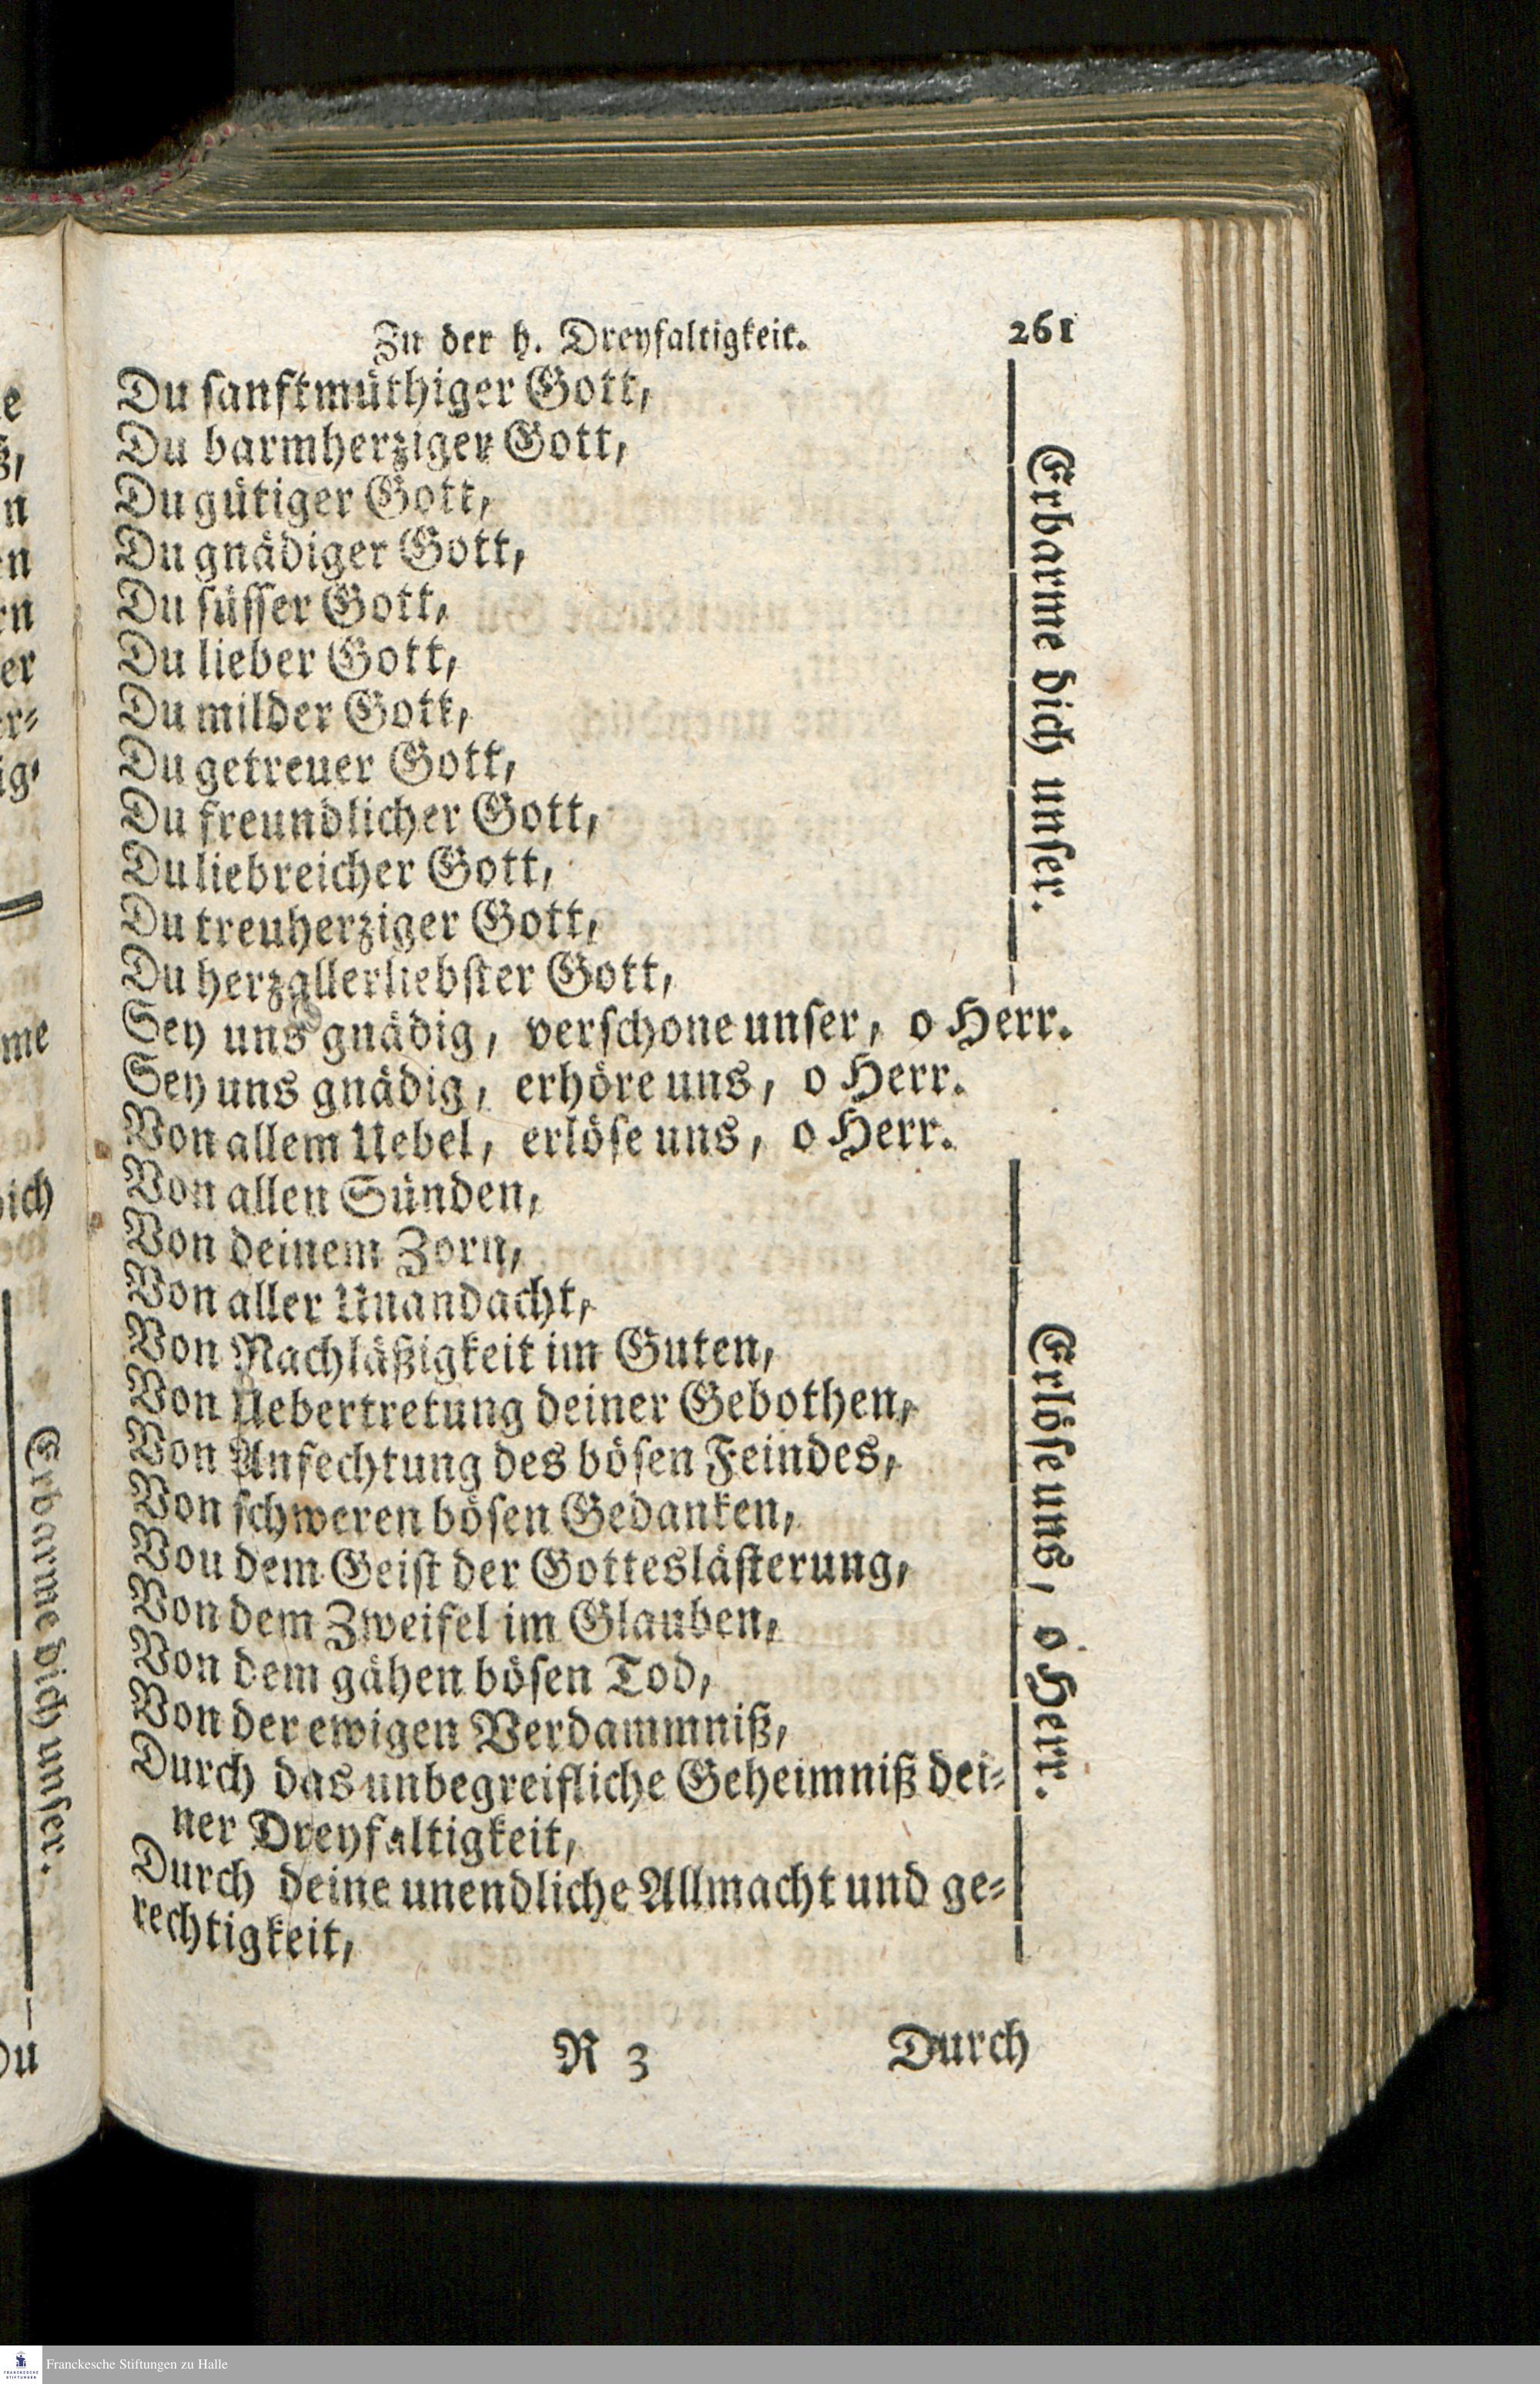 Zu der h. Dreyfaltigkeit.
261
Du sanftmüthiger Gott,
Du barmherziger Gott,
Du gütiger Gott,
Du gnädiger Gott,
Du süsser Gott,
Du lieber Gott,
Du milder Gott,
Du getreuer Gott,
Du freundlicher Gott,
Du liebreicher Gott,
Du treuherziger Gott,
Du herzallerliebster Gott,
Erbarme dich unser.
Sey uns gnädig, verschone unser, o Herr.
Sey uns gnädig, erhöre uns, o Herr.
Von allem Uebel, erlöse uns, o Herr.
Von allen Sünden,
Von deinem Zorn,
Von aller Unandacht,
Von Nachläßigkeit im Guten,
Von Uebertretung deiner Gebothen,
Von Anfechtung des bösen Feindes,
Von schweren bösen Gedanken,
Vou dem Geist der Gotteslästerung,
Von dem Zweifel im Glauben,
Von dem gähen bösen Tod,
Von der ewigen Verdammniß,
Durch das unbegreifliche Geheimniß dei-
ner Dreyfaltigkeit,
Durch deine unendliche Allmacht und ge-
rechtigkeit,
Erlöse uns, o Herr.
R 3
Durch
Erbarme dich unser.
Franckesche Stiftungen zu Halle